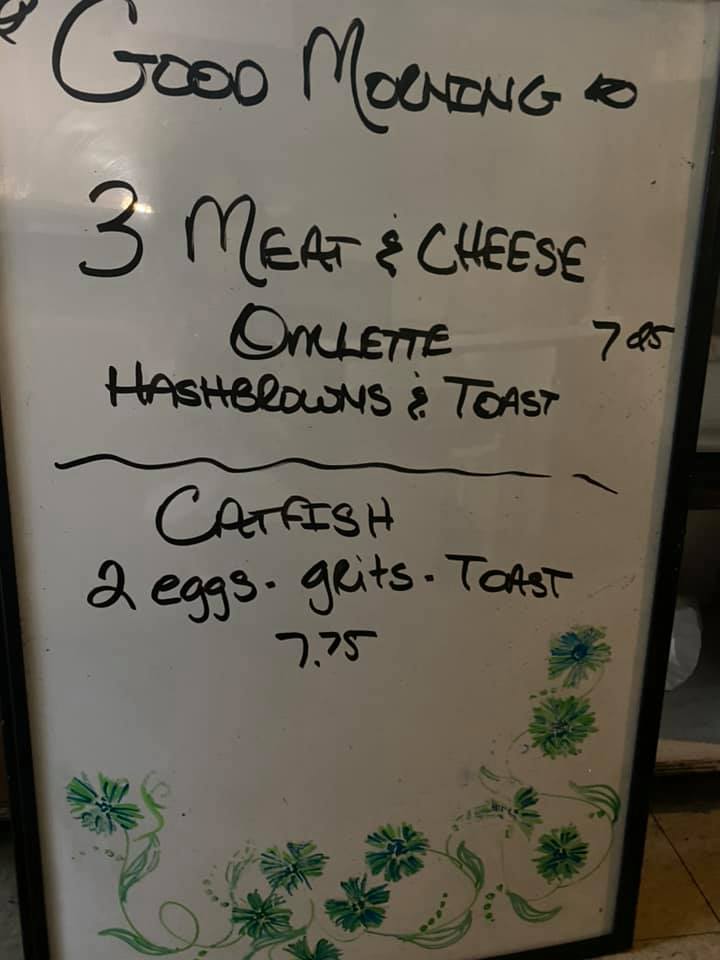 GOOD MORNING
3 MEAT & CHEESE
OMLETTE
HASHBROWNS & TOAST
CATFISH
2 eggs. grits. TOAST
7.75